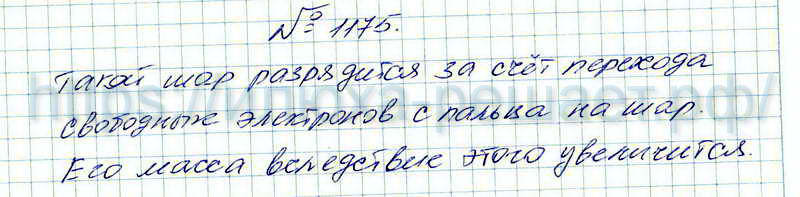 № 1175.
Такой шар разрядится за счёт перехода
свободных электронов с пальца на шар.
Его масса вследствие этого увеличится.